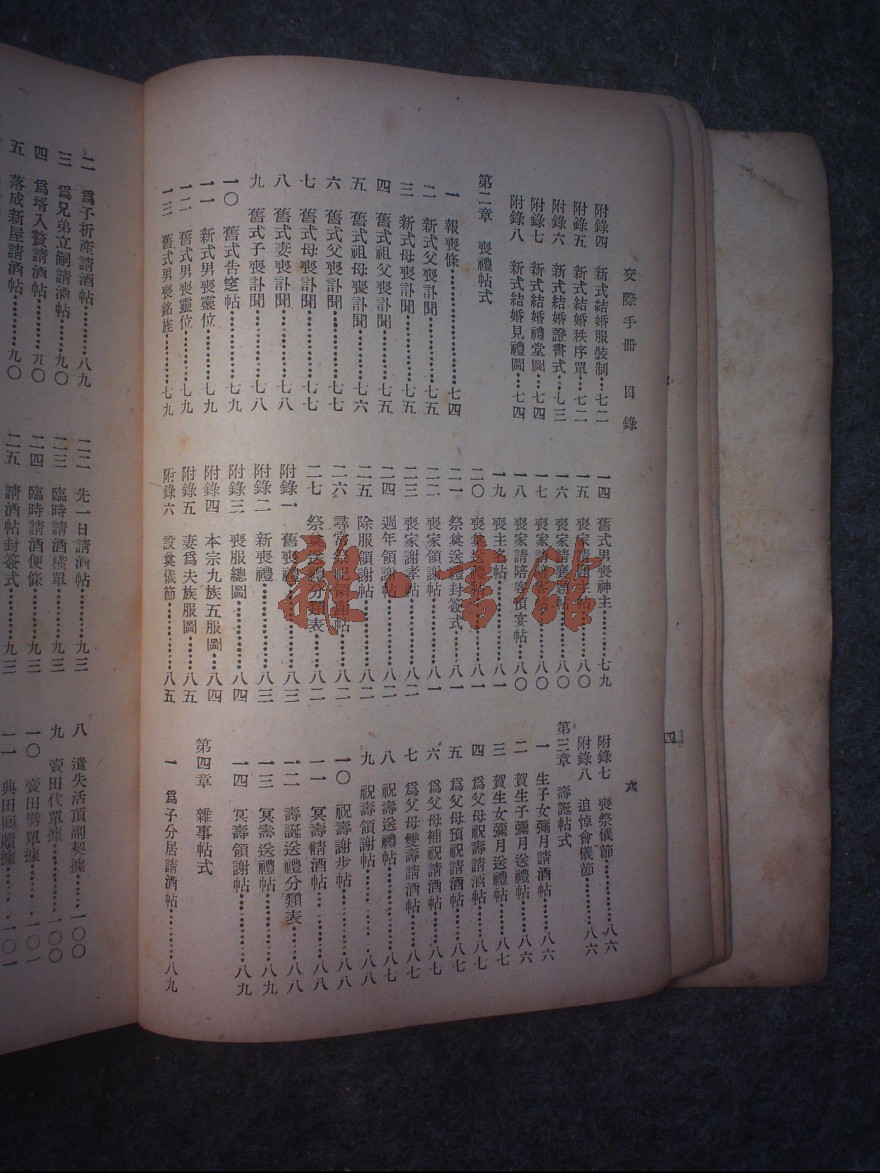 交際手冊 目錄
六
附錄四 新式結婚服裝制⋯⋯七二
附錄五 新式結婚秩序單⋯⋯七二
附錄六 新式結婚證書式⋯⋯七三
附錄七 新式結婚禮堂圖⋯⋯七四
附錄八 新式結婚見禮圖⋯⋯七四
第二章 喪禮帖式
一 報喪條⋯⋯七四
二 新式父喪訃聞⋯⋯七五
三 新式母喪訃聞⋯⋯七五
四 舊式祖父喪訃聞⋯⋯七五
五 舊式祖母喪訃聞⋯⋯七六
六 舊式父喪訃聞⋯⋯七七
七 舊式母喪訃聞⋯⋯七七
八 舊式妻喪訃聞⋯⋯七八
九 舊式子喪訃聞⋯⋯七八
一〇 舊式告窆帖⋯⋯七九
一一 新式男喪靈位⋯⋯七九
一二 舊式男喪靈位⋯⋯七九
一三 舊式男喪銘旌⋯⋯七九
一四 舊式男喪神主⋯⋯七九
一五 喪家請題主帖⋯⋯八〇
一六 喪家請襄題帖⋯⋯八〇
一七 喪家請⋯⋯八〇
一八 喪家請陪客預宴帖⋯⋯八〇
一九 喪主名帖⋯⋯八一
二〇 喪奠送禮帖⋯⋯八一
二一 祭奠送禮封簽式⋯⋯八一
二二 喪家領謝帖⋯⋯八一
二三 喪家謝孝帖⋯⋯八二
二四 週年領謝帖⋯⋯八二
二五 除服領謝帖⋯⋯八二
二六 尋常祭祀領謝帖⋯⋯八二
二七 祭奠送禮分類表⋯⋯八二
附錄一 舊喪禮⋯⋯八三
附錄二 新喪禮⋯⋯八三
附錄三 喪服總圖⋯⋯八四
附錄四 本宗九族五服圖⋯⋯八四
附錄五 妻爲夫族服圖⋯⋯八五
附錄六 設奠儀節⋯⋯八五
附錄七 喪祭儀節⋯⋯八六
附錄八 追悼會儀節⋯⋯八六
第三章 壽誕帖式
一 生子女彌月請酒帖⋯⋯八六
二 賀生子彌月送禮帖⋯⋯八六
三 賀生女彌月送禮帖⋯⋯八七
四 爲父母祝壽請酒帖⋯⋯八七
五 爲父母預祝請酒帖⋯⋯八七
六 爲父母補祝請酒帖⋯⋯八七
七 爲父母雙壽請酒帖⋯⋯八七
八 祝壽送禮帖⋯⋯八八
九 祝壽領謝帖⋯⋯八八
一〇 祝壽謝步帖⋯⋯八八
一一 冥壽請酒帖⋯⋯八八
一二 壽誕送禮分類表⋯⋯八八
一三 冥壽送禮帖⋯⋯八九
一四 冥壽領謝帖⋯⋯八九
第四章 雜事帖式
一 爲子分居請酒帖⋯⋯八九
二 爲子析產請酒帖⋯⋯八九
三 爲兄弟立嗣請酒帖⋯⋯九〇
四 爲壻入贅請酒帖⋯⋯九〇
五 落成新屋請酒帖⋯⋯九〇
二二 先一日請酒帖⋯⋯九三
二三 臨時請酒橫單⋯⋯九三
二四 臨時請酒便條⋯⋯九三
二五 請酒帖封簽式⋯⋯九三
八 遺失活頂副契據⋯⋯一〇〇
九 賣田代單據⋯⋯一〇〇
一〇 賣田劈單據⋯⋯一〇一
一一 典田回贖據⋯⋯一〇一
四
雜·書館